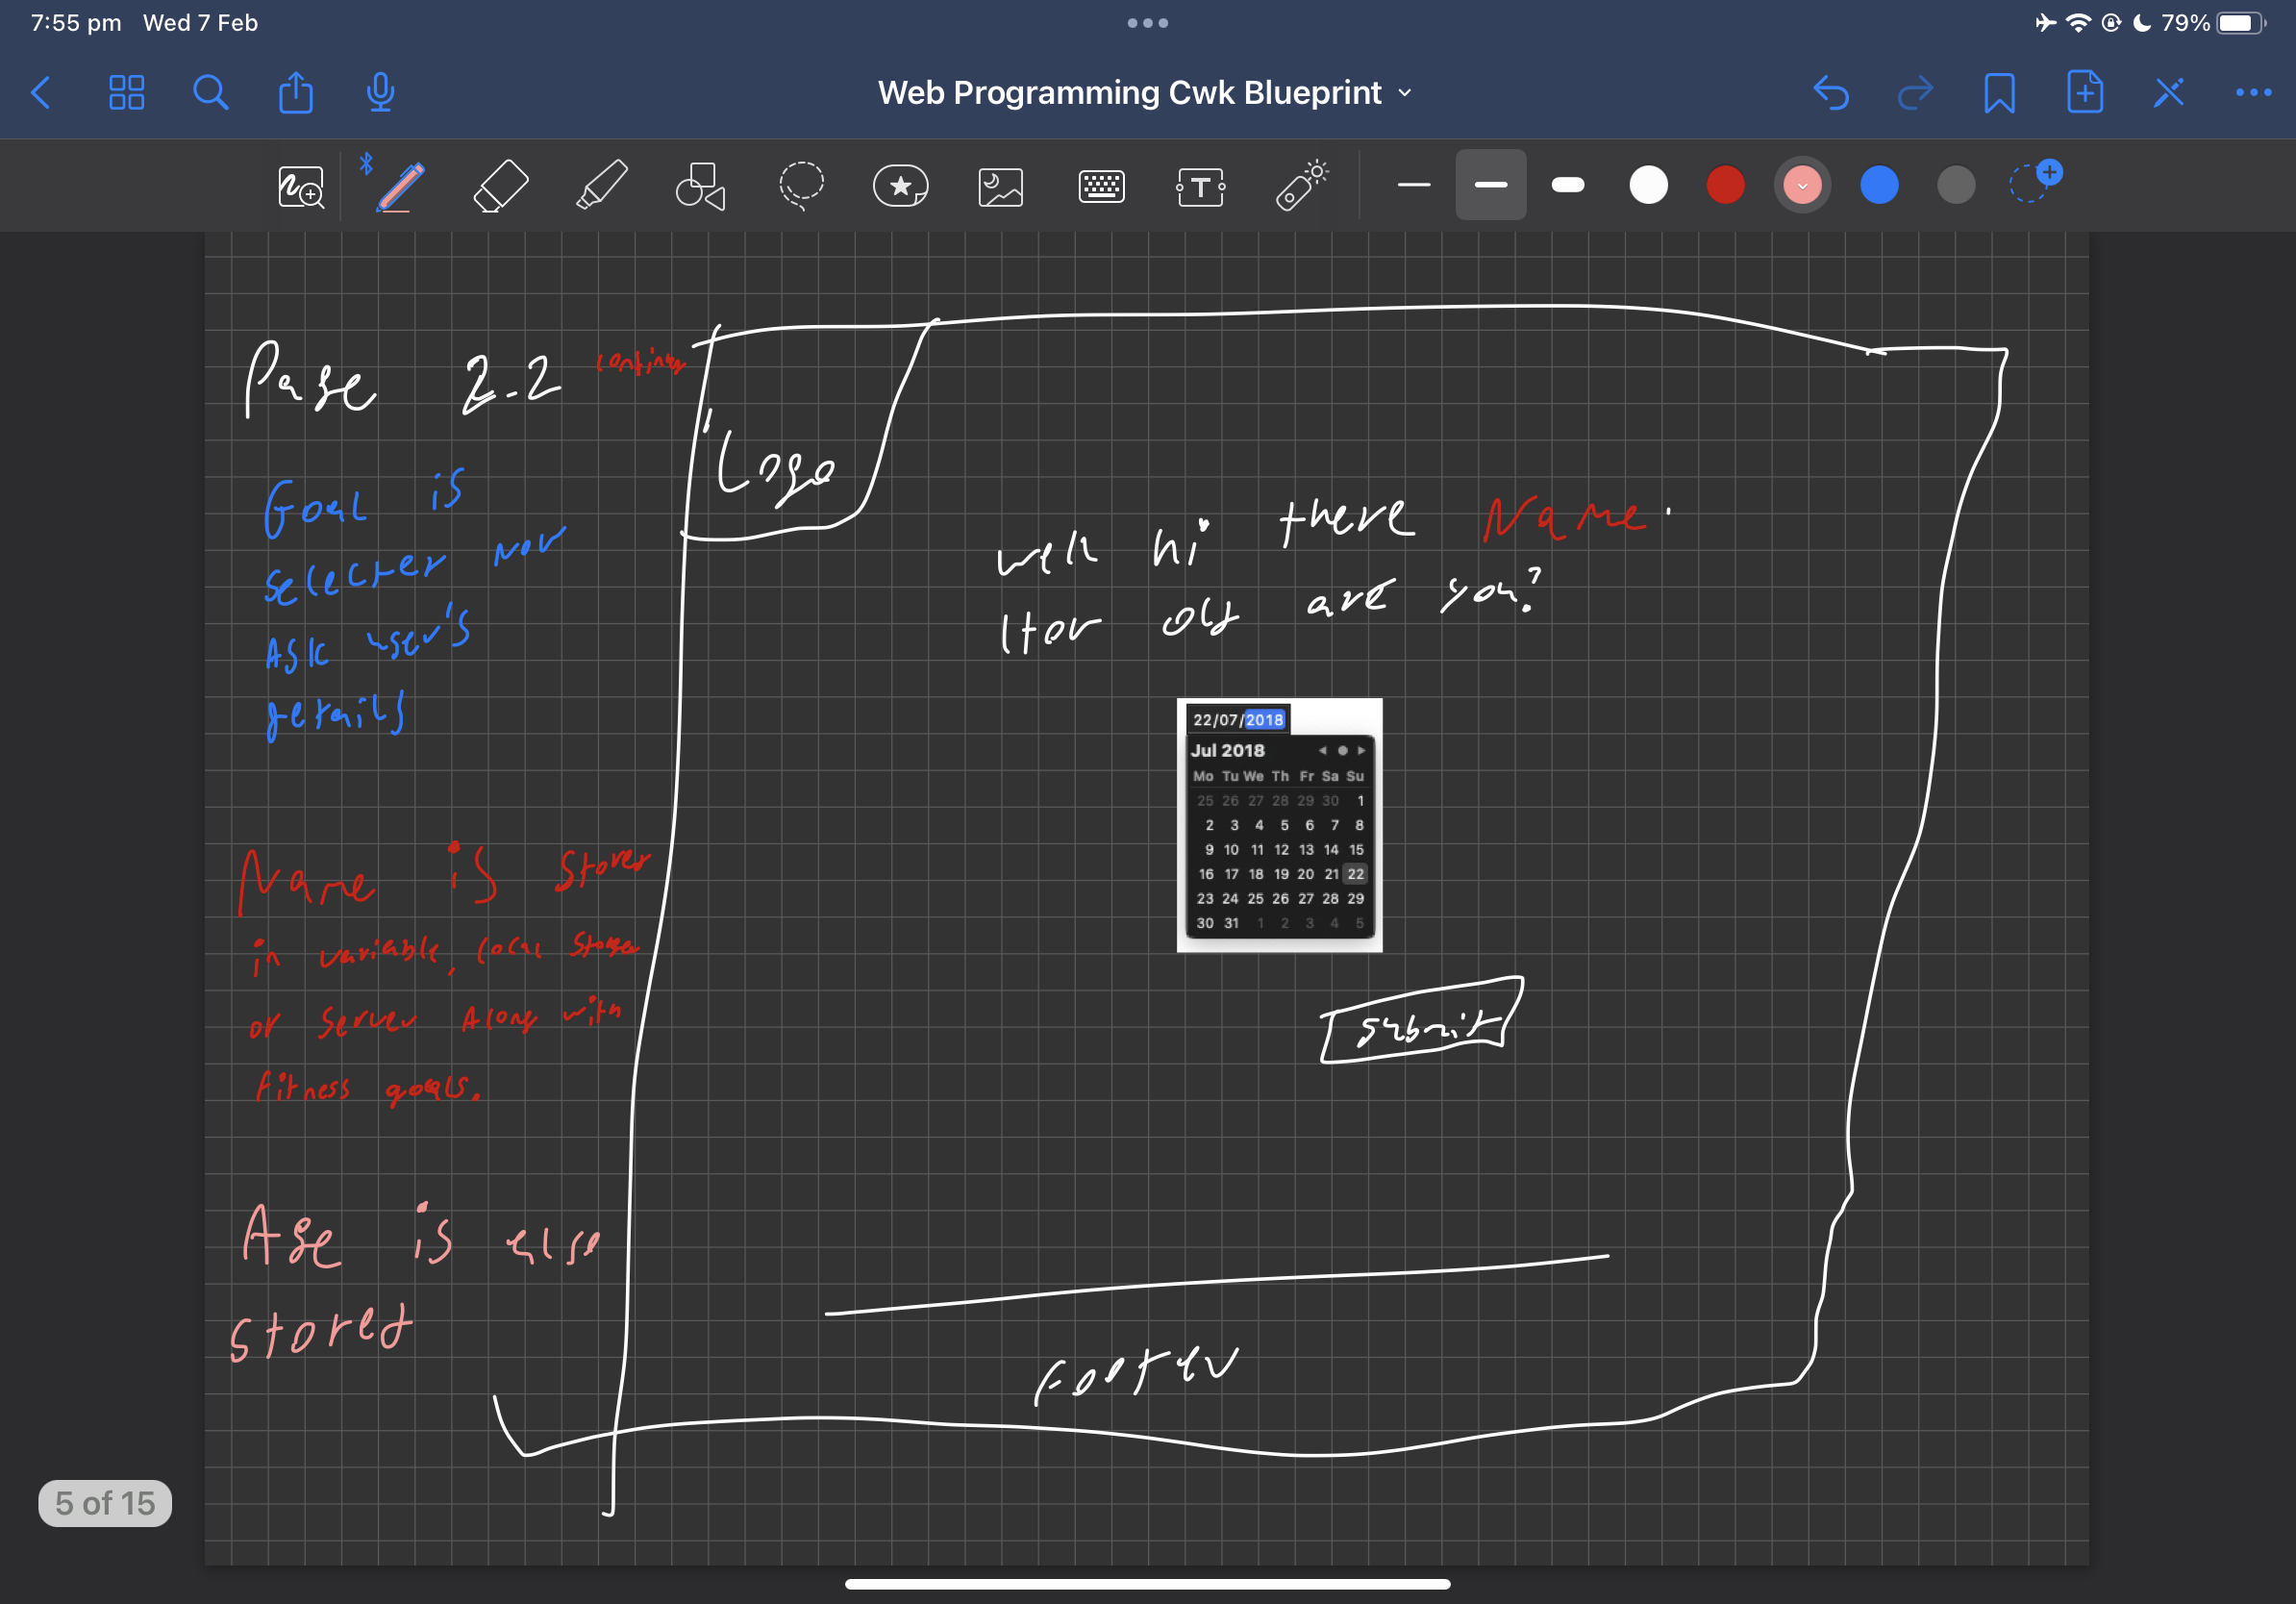 7:55 pm Wed 7 Feb
79%
Web Programming Cwk Blueprint
T
Page 2.2 continue
Goal is
selected now
Ask user's
details
Name is stored
in variable, local storage
or server Along with
fitness goals.
Age is also
stored
Logo
well hi there Name.
How old are you?
22/07/2018
Jul 2018
Mo Tu We Th Fr Sa Su
25 26 27 28 29 30 1
2 3 4 5 6 7 8
9 10 11 12 13 14 15
16 17 18 19 20 21 22
23 24 25 26 27 28 29
30 31 1 2 3 4 5
submit
Footer
5 of 15